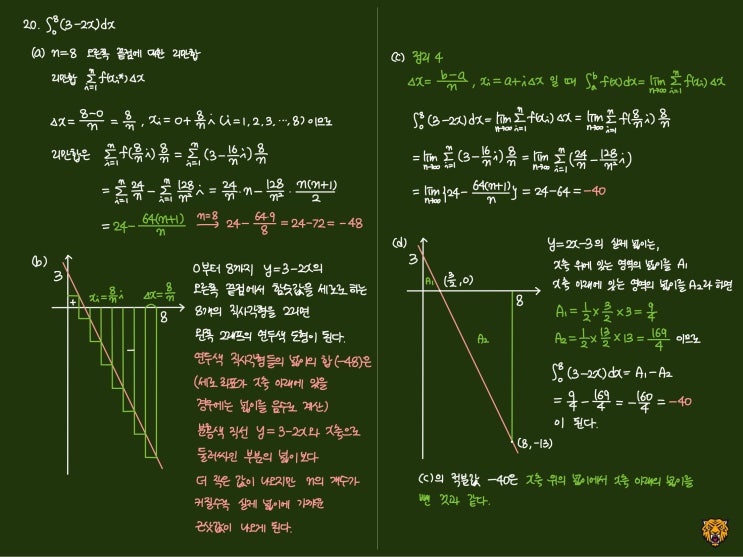 20. ∫₀⁸(3-2x)dx
(a) n=8 오른쪽 끝점에 대한 리만합
리만합 Σᵢ₌₁ⁿ f(xᵢ*)Δx
Δx = (8-0)/n = 8/n , xᵢ = 0 + 8/n i (i=1, 2, 3, …, 8) 이므로
리만합은 Σᵢ₌₁ⁿ f(8/n i) 8/n = Σᵢ₌₁ⁿ (3 - 16/n i) 8/n
= Σᵢ₌₁ⁿ 24/n - Σᵢ₌₁ⁿ 128/n² i = 24/n · n - 128/n² · n(n+1)/2
= 24 - 64(n+1)/n → n=8 24 - 64·9/8 = 24-72 = -48
(b)
3
xᵢ = 8/n i
Δx = 8/n
+
8
-
0부터 8까지 y=3-2x의
오른쪽 끝점에서 함숫값을 세로로 하는
8개의 직사각형을 그리면
왼쪽 그래프의 연두색 도형이 된다.
연두색 직사각형들의 넓이의 합(-48)은
(세로 좌표가 x축 아래에 있을
경우에는 넓이를 음수로 계산)
분홍색 직선 y=3-2x와 x축으로
둘러싸인 부분의 넓이보다
더 작은 값이 나오지만 n의 개수가
커질수록 실제 넓이에 가까운
근삿값이 나오게 된다.
(c) 정리 4
Δx = (b-a)/n , xᵢ = a+iΔx 일 때 ∫ₐᵇ f(x)dx = lim n→∞ Σᵢ₌₁ⁿ f(xᵢ)Δx
∫₀⁸(3-2x)dx = lim n→∞ Σᵢ₌₁ⁿ f(xᵢ)Δx = lim n→∞ Σᵢ₌₁ⁿ f(8/n i) 8/n
= lim n→∞ Σᵢ₌₁ⁿ (3 - 16/n i) 8/n = lim n→∞ Σᵢ₌₁ⁿ (24/n - 128/n² i)
= lim n→∞ {24 - 64(n+1)/n} = 24-64 = -40
(d)
3
A₁
(3/2, 0)
8
A₂
(8, -13)
y=2x-3의 실제 넓이는,
x축 위에 있는 영역의 넓이를 A₁
x축 아래에 있는 영역의 넓이를 A₂라 하면
A₁ = 1/2 × 3/2 × 3 = 9/4
A₂ = 1/2 × 13/2 × 13 = 169/4 이므로
∫₀⁸(3-2x)dx = A₁ - A₂
= 9/4 - 169/4 = -160/4 = -40
이 된다.
(c)의 적분값 -40은 x축 위의 넓이에서 x축 아래의 넓이를
뺀 것과 같다.